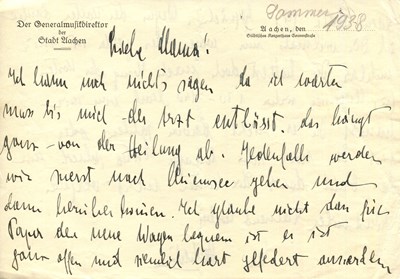 Der Generalmusikdirektor
der
Stadt Aachen
Aachen, den
Städtisches Konzerthaus Comausstraße
Sommer
1938
Liebe Mama!
Ich kann noch nichts sagen da ich warten
muss bis mich der Arzt entlässt. Das hängt
ganz von der Heilung ab. Jedenfalls werden
wir zuerst nach gehen und
dann herüber kommen. Ich glaube nicht dass für
Papa der neue Wagen bequem ist er ist
ganz offen und ziemlich hart gefedert ausserdem